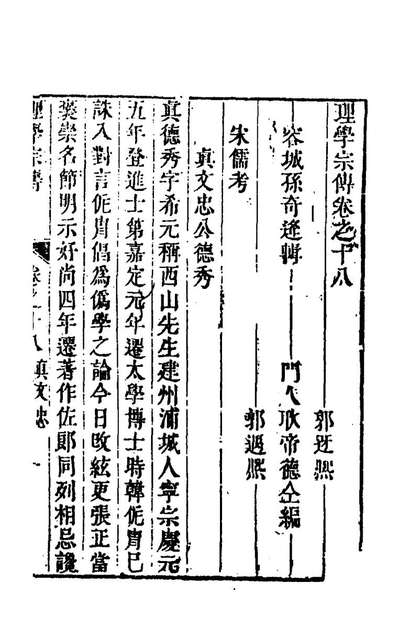 理學宗傳卷之十八
容城孫奇逢輯
門人
郭迓熙
耿帝德仝編
郭遇熙
宋儒考
真文忠公德秀
真德秀字希元稱西山先生建州浦城人寧宗慶元
五年登進士第嘉定元年遷太學博士時韓侂胄已
誅入對言侂胄倡為偽學之論今日改絃更張正當
褒崇名節明示好尚四年遷著作佐郎同列相忌讒
理學宗傳
卷之十八
真文忠
一